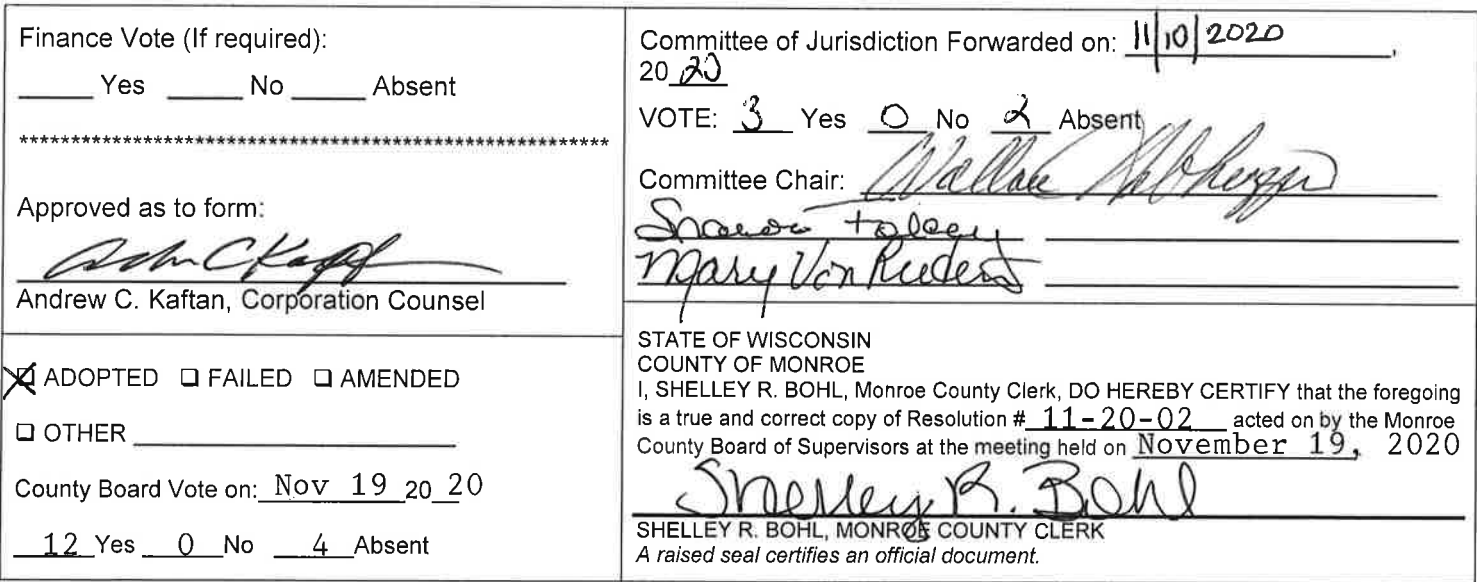 Finance Vote (If required):
_____ Yes _____ No _____ Absent
************************************************************
Approved as to form:
Andrew C. Kaftan, Corporation Counsel
☒ ADOPTED ☐ FAILED ☐ AMENDED
☐ OTHER
County Board Vote on: Nov 19 20 20
12 Yes 0 No 4 Absent
Committee of Jurisdiction Forwarded on: 11/10/2020,
20 20
VOTE: 3 Yes 0 No 2 Absent
Committee Chair: Wallace
Sharon Folcey
Mary Von Ruden
STATE OF WISCONSIN
COUNTY OF MONROE
I, SHELLEY R. BOHL, Monroe County Clerk, DO HEREBY CERTIFY that the foregoing
is a true and correct copy of Resolution # 11-20-02 acted on by the Monroe
County Board of Supervisors at the meeting held on November 19, 2020
Shelley R. Bohl
SHELLEY R. BOHL, MONROE COUNTY CLERK
A raised seal certifies an official document.